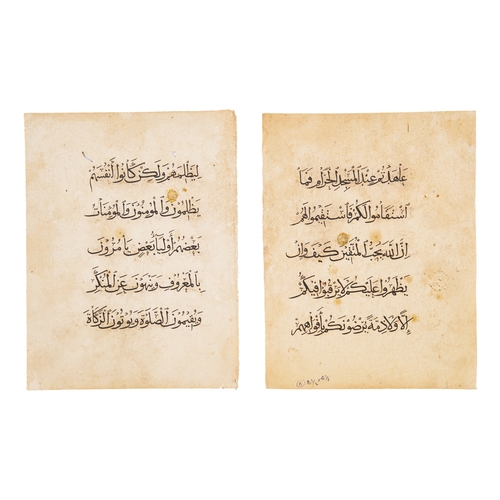 ليظلمهم ولكن كانوا أنفسهم
يظلمون والمؤمنون والمؤمنات
بعضهم أوليا بعض يامرون
بالمعروف وينهون عن المنكر
ويقيمون الصلوة ويوتون الزكاة
عاهدتم عند المسجد الحرام فما
استقاموا لكم فاستقيموا لهم
ان الله يحب المتقين كيف وان
يظهروا عليكم لا يرقبوا فيكم
إلا ولا ذمة يرضونكم بافواههم